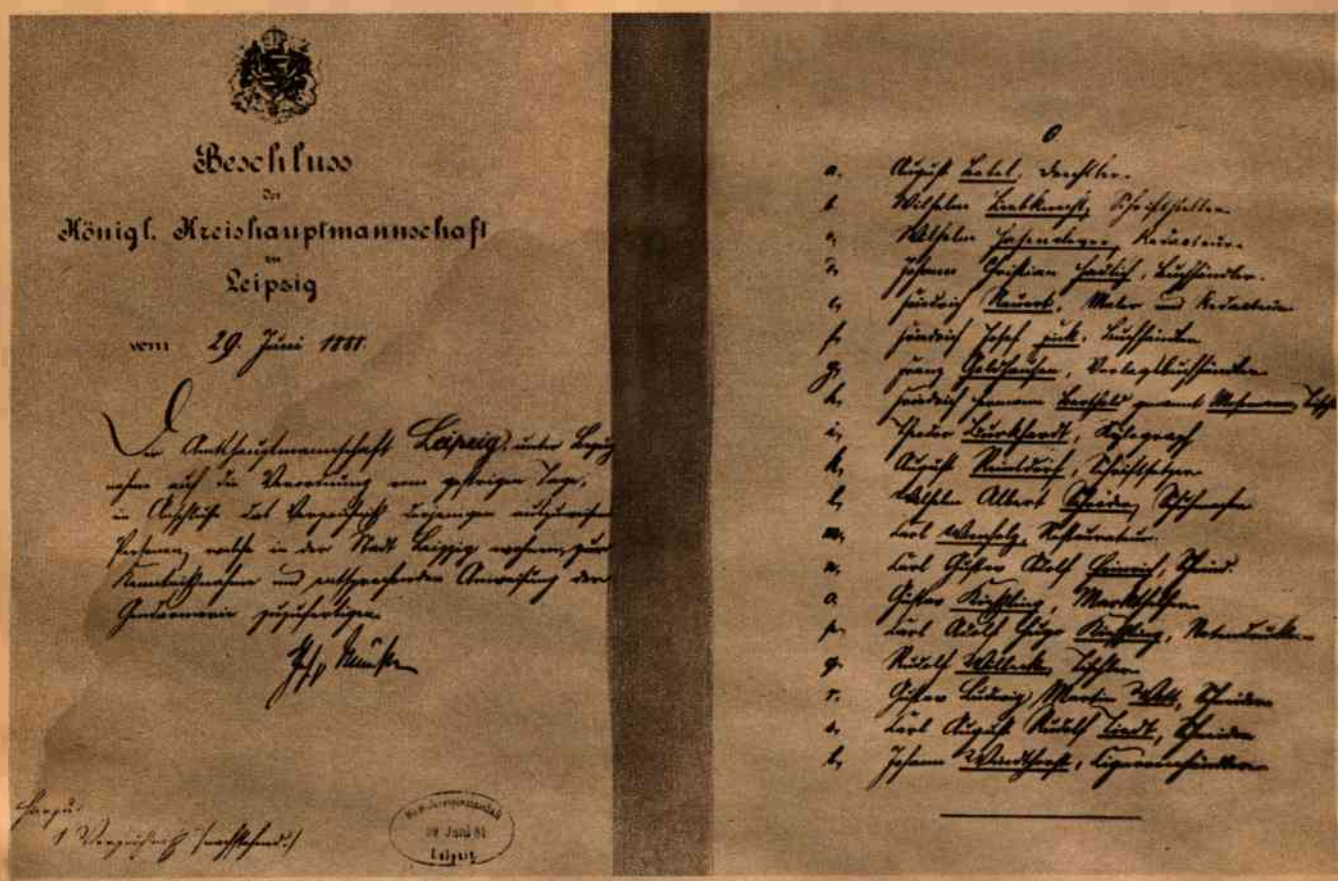 Beschluss
der
Königl. Kreishauptmannschaft
zu
Leipzig
vom 29. Juni 1881.
Der Amtshauptmannschaft Leipzig, unter Bezug
nahme auf die Verordnung vom gestrigen Tage,
im Anschluß das Verzeichniß derjenigen auszuweisenden
Personen, welche in der Stadt Leipzig wohnen, zur
Kenntnißnahme und entsprechenden Anweisung der
Gendarmerie zuzufertigen.
Hierzu:
1 Verzeichniß
29 Juni 81
Leipzig
a. August Bebel, Drechsler.
b. Wilhelm Liebknecht, Schriftsteller.
c, Wilhelm Hasenclever, Redacteur.
d, Johann Christian Hadlich, Buchhändler.
e, Friedrich Maler und Redacteur
f, Friedrich Josef Fink, Buchhändler
g, Franz Goldhausen, Verlagsbuchhändler
h, Friedrich Hermann genannt
i, Theodor Burkhardt, Xylograph
k, August Reinsdorf, Schriftsetzer
l, Wilhelm Albert Schuhmacher
m, Carl Restaurateur.
n, Carl Gustav Adolf Heinrich,
o, Gustav Kießling, Markthelfer
p, Carl Adolf Hugo Kießling, Notendrucker
q. Rudolf Tischler
r. Gustav Ludwig Martin Schneider
s, Carl August Rudolf Schneider
t, Johann Windthorst, Cigarrenhändler